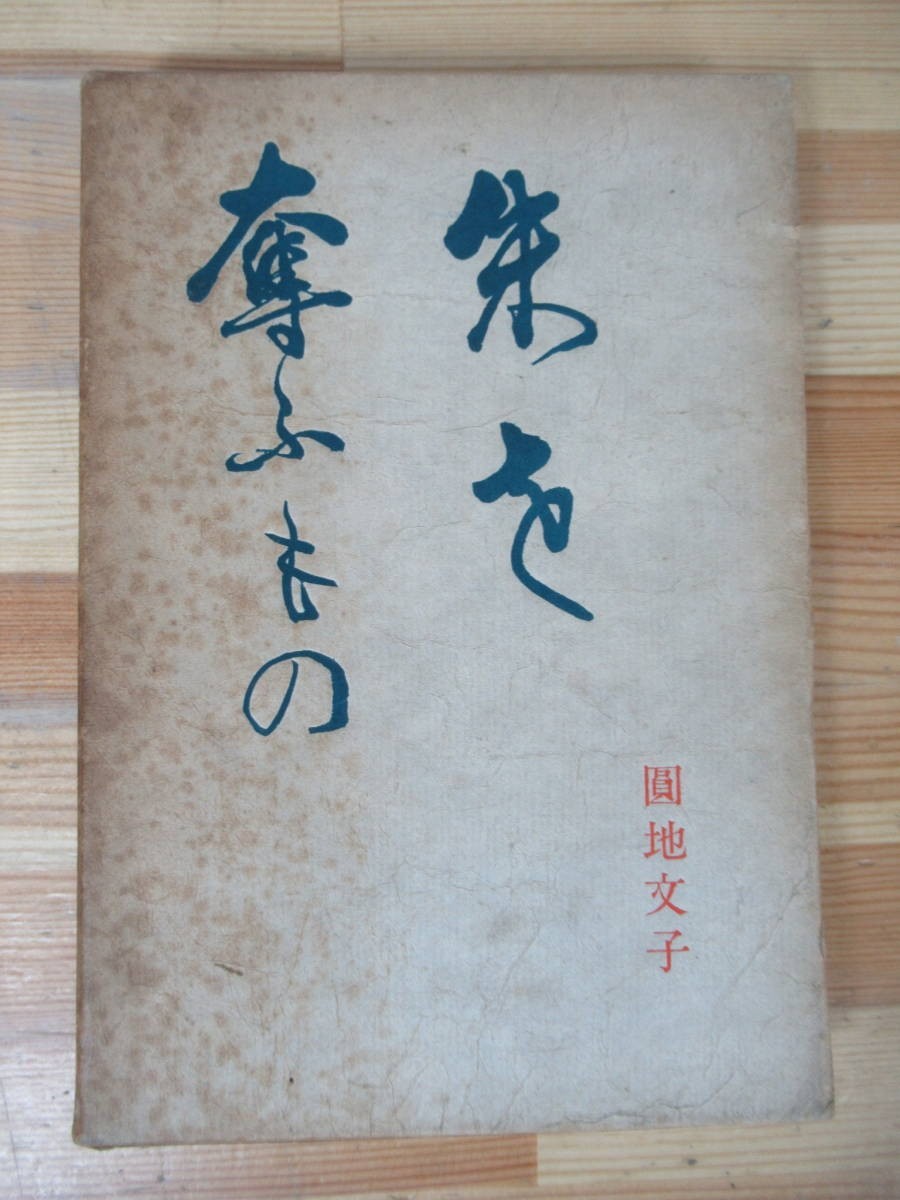 朱を
奪ふもの
圓地文子